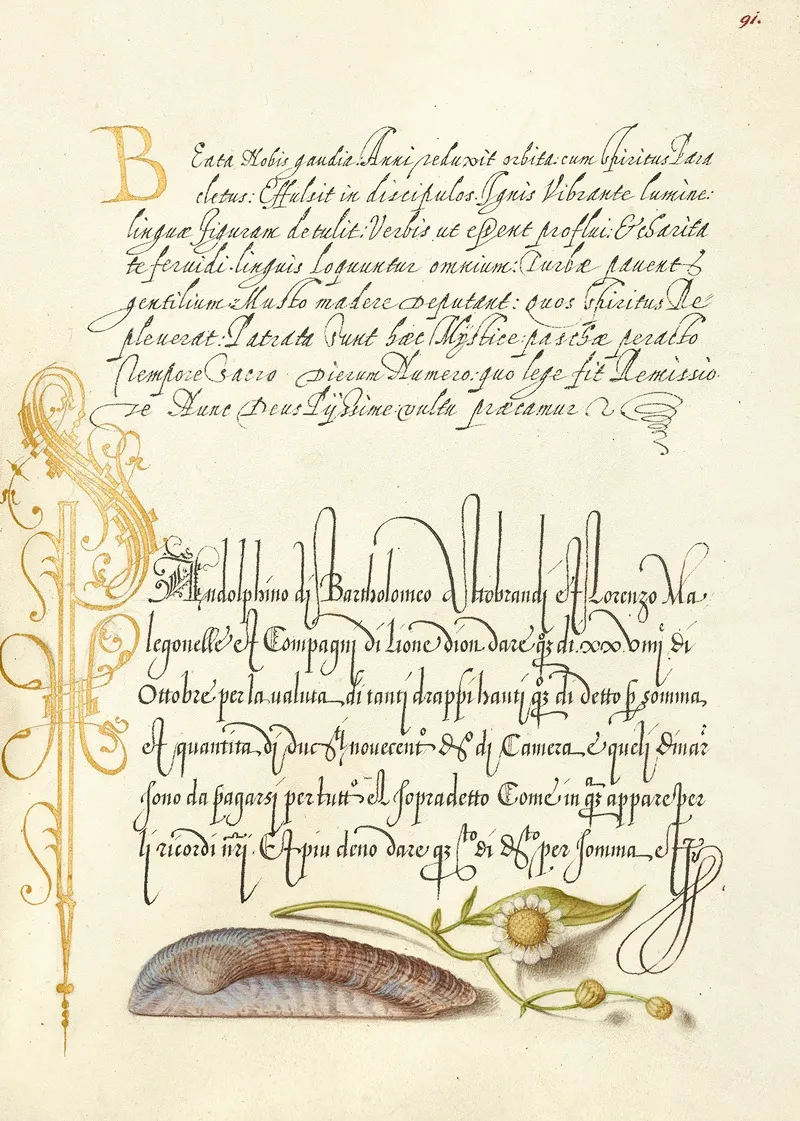 91.
BEata Nobis gaudia. Anni reduxit orbita: cum spiritus Para
cletus: Effulsit in discipulos. Ignis Vibrante lumine:
linguæ figuram detulit: Verbis ut essent proflui: & charita
te feruidi. linguis loquuntur omnium: Turbæ pauent &
gentilium Musto madere Deputant: quos spiritus Re-
pleuerat: Patrata sunt hæc Mystice: paschæ peracto
tempore sacro Dierum Numero: quo lege fit Remissio
Te Nunc Deus Pijssime vultu præcamur
Randolphino di Bartholomeo Altobrandi et Lorenzo Ma
legonelle et Compagni di lione dion dare q̃z di. xx vıııj̊ di
Ottobre per la ualuta di tanti drappi hauti q̃z di detto p̱ somma
et quantita di duc.ti nouecent.o dº di Camera e queli dinar
sono da pagarsi per tutt.o el sopradetto Come in q̃z appare per
li ricordi nr̃i. Et piu deno dare q̃z sto di dto per somma et